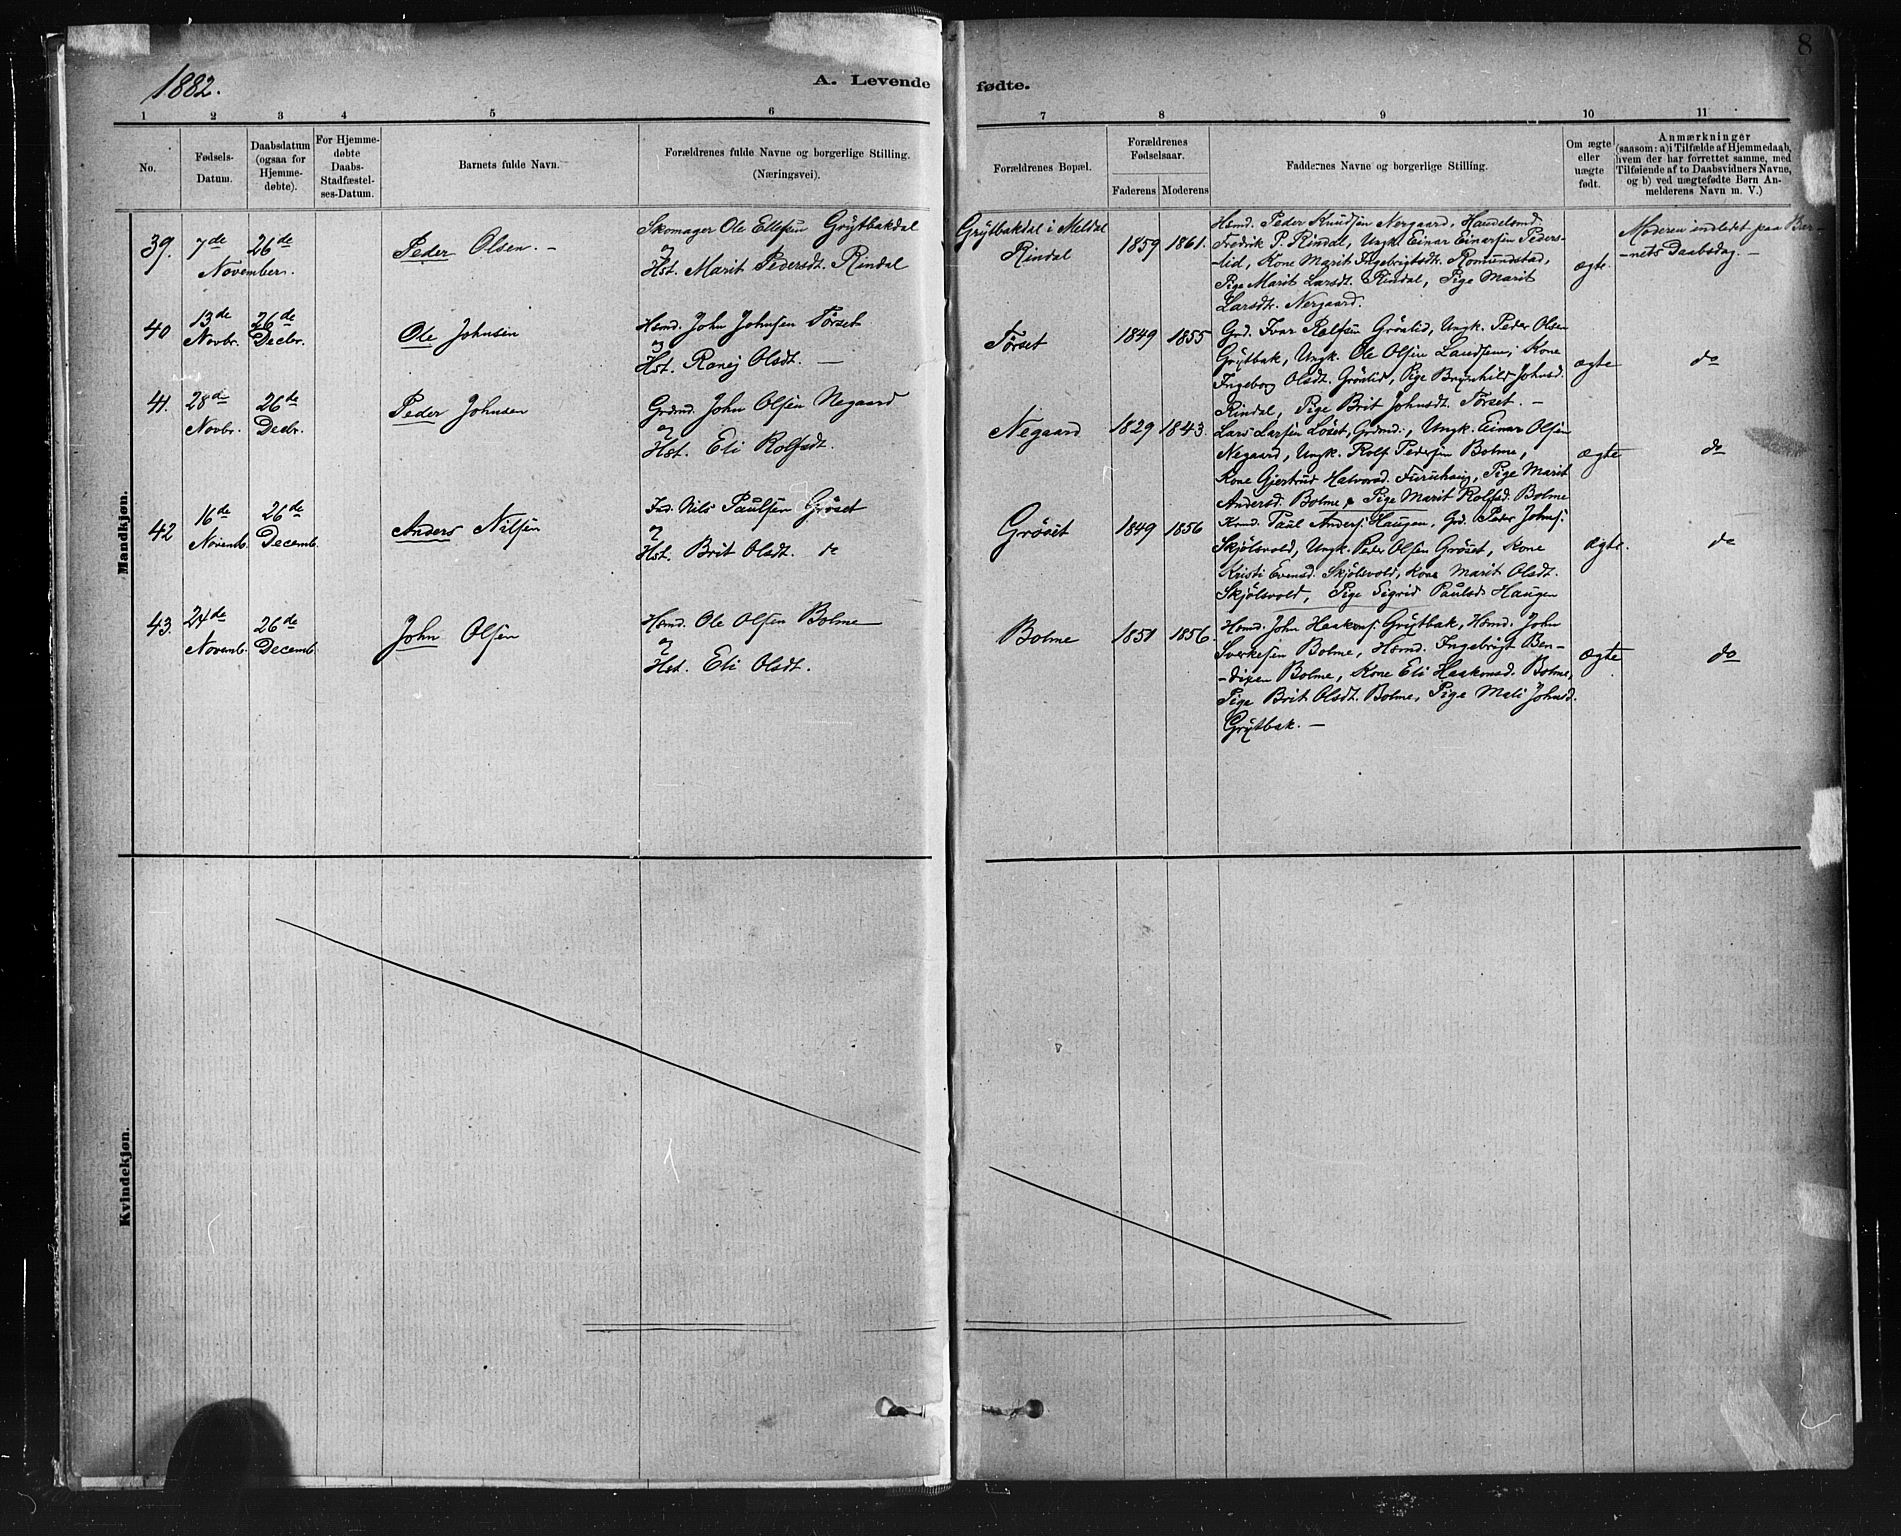 8
1882.
A. Levende fødte.
1 2 3 4 5 6 7 8 9 10 11
No.
Fødsels-
Datum.
Daabsdatum
(ogsaa for
Hjemme-
døbte).
For Hjemme-
døbte
Daabs-
Stadfæstel-
ses-Datum.
Barnets fulde Navn.
Forældrenes fulde Navne og borgerlige Stilling.
(Næringsvei).
Forældrenes Bopæl.
Forældrenes
Fødselsaar.
Faderens Moderens
Faddernes Navne og borgerlige Stilling.
Om ægte
eller
uægte
født.
Anmærkninger
(saasom: a) i Tilfælde af Hjemmedaab,
hvem der har forrettet samme, med
Tilføiende af to Daabsvidners Navne,
og b) ved uægtefødte Børn An-
melderens Navn m. V.)
Mandkjøn.
39. 7de 26de
November.
Peder Olsen. -
Skomager Ole Ellefsen Grýtbakdal
og
Hst. Marit Pedersdt. Rindal
Grýtbakdal i Meldal
Rindal
1859 1861.
Hsmd. Peder Knudsen Nergaard, Handelsmd.
Fredrik P. Rindal, Ungk. Einar Einersen Peders-
-lid, Kone Marit Ingebrigtsdt. Romundstad,
Pige Marit Larsdt. Rindal, Pige Marit
Larsdt. Nergaard.
ægte.
Moderen indledet paa Bar-
-nets Daabsdag. -
40 13de 26de
Novbr. Decbr.
Ole Johnsen
Hsmd. John Johnsen Tørset
og
Hst. Ranej Olsdt. -
Tørset
1849 1855
Grd. Ivar Rolfsen Grønlid, Ungk. Peder Olsen
Grýtbak, Ungk. Ole Olsen Landsem, Kone
Ingeborg Olsdt. Grønlid, Pige Brynhild Johnsd.
Rindal, Pige Brit Johnsdt. Tørset. -
ægte
do
41. 28de 26de
Novbr. Decbr.
Peder Johnsen
Grdmd. John Olsen Negaard
og
Hst. Eli Rolfsdt.
Negaard
1829 1843.
Lars Larsen Løset, Grdmd., Ungk. Einar Olsen
Negaard, Ungk. Rolf Pedersen Bolme,
Kone Gjertrud Halvorsd. Furuhaug, Pige Marit
Andersd. Bolme, Pige Marit Rolfsd. Bolme
ægte
do
42 16de 26de
Novemb. Decemb.
Anders Nilsen
Ind. Nils Paulsen Grøset
og
Hst. Brit Olsdt. do
Grøset
1849 1856
Hsmd. Paul Anders. Haugen, Grd. Peder Johns.
Skjølsvold, Ungk. Peder Olsen Grøset, Kone
Kristi Evensd. Skjølsvold, Kone Marit Olsdt.
Skjølsvold, Pige Sigrid Paulsd. Haugen
ægte.
do
43. 24de 26de
Novemb. Decemb.
John Olsen
Hsmd. Ole Olsen Bolme
og
Hst. Eli Olsdt.
Bolme
1851 1856.
Hsmd. John Haakens. Grýtbak, Hsmd. John
Sverkesen Bolme, Hsmd. Ingebrigt Ben-
-dixen Bolme, Kone Eli Haakensd. Bolme,
Pige Brit Olsdt. Bolme, Pige Mali Johnsd.
Grýtbak. -
ægte
do
Kvindekjøn.